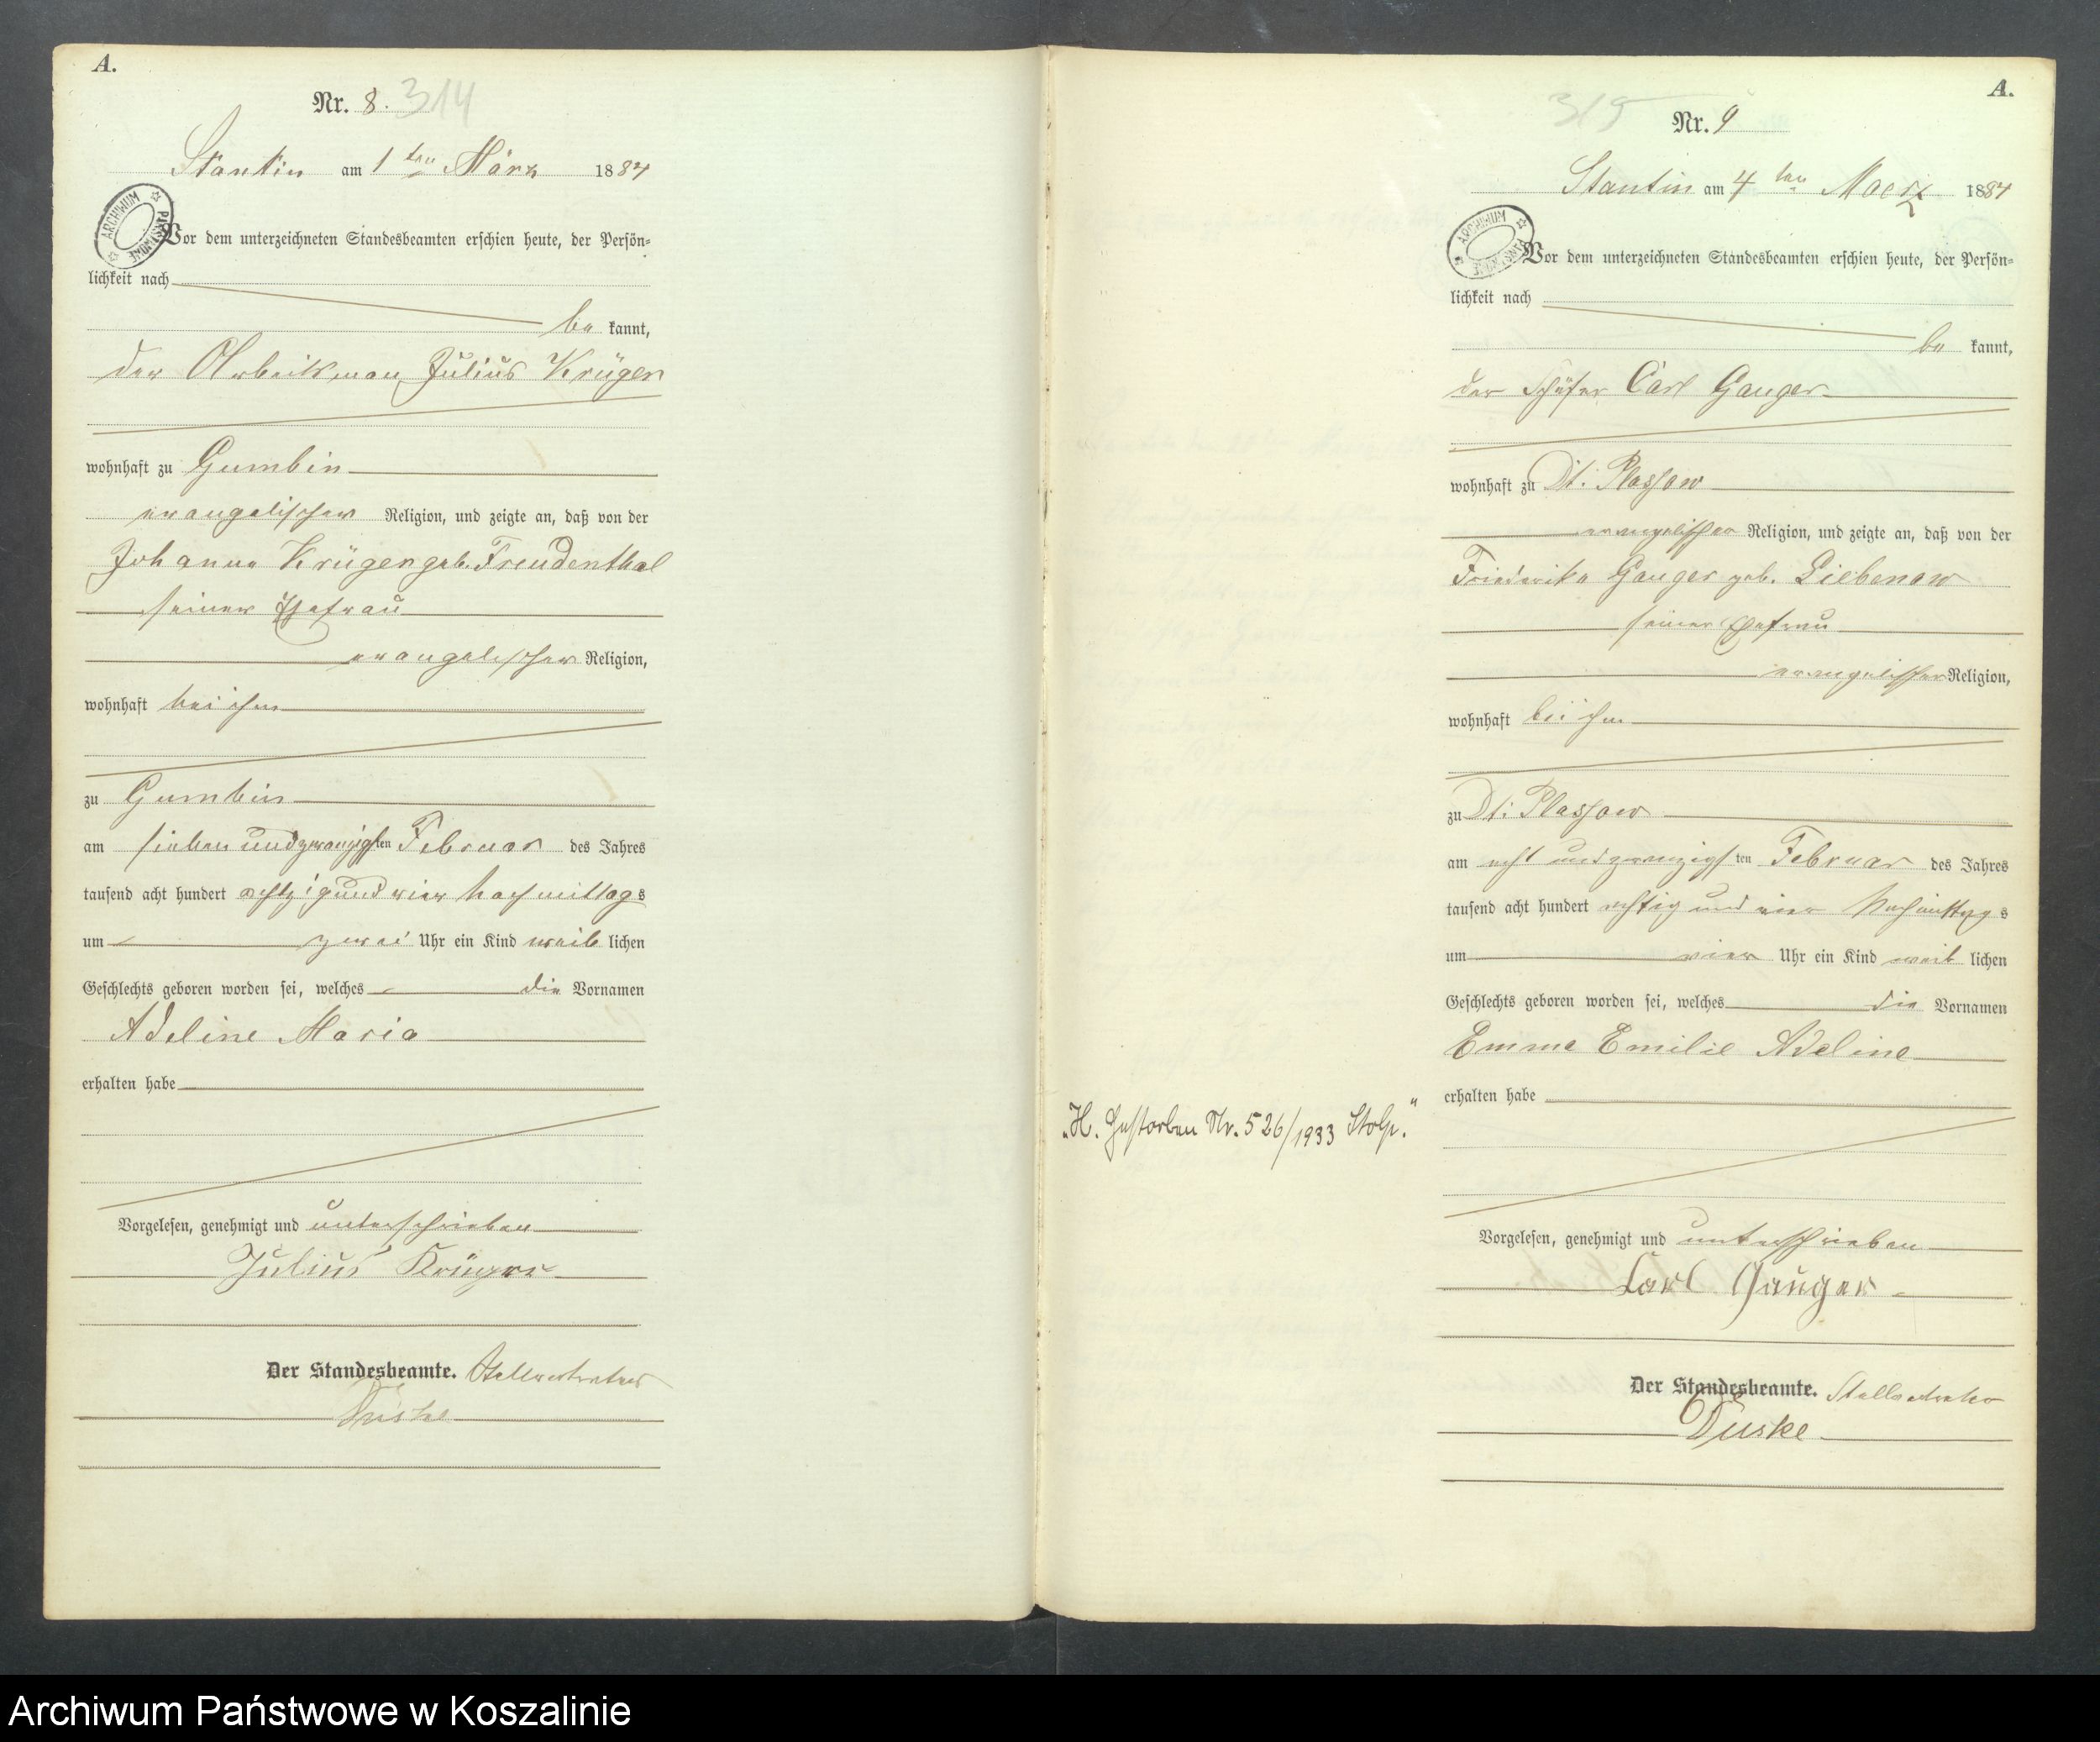 A.
Nr. 8. 314
Stantin am 1ten März 1884
ARCHIWUM PAŃSTWOWE
Vor dem unterzeichneten Standesbeamten erschien heute, der Persön-
lichkeit nach
be kannt,
der Arbeitsman Julius Krüger
wohnhaft zu Gumbin
evangelischer Religion, und zeigte an, daß von der
Johanne Krüger geb. Freudenthal
seiner Ehefrau
evangelischer Religion,
wohnhaft bei ihm
zu Gumbin
am siebenundzwanzigsten Februar des Jahres
tausend acht hundert achtzigundvier Nachmittags
um zwei Uhr ein Kind weib lichen
Geschlechts geboren worden sei, welches die Vornamen
Adeline Maria
erhalten habe
Vorgelesen, genehmigt und unterschrieben
Julius Krüger
Der Standesbeamte. Stellvertreter
Düske
A.
315 Nr. 9
Stantin am 4ten Maerz 1884
ARCHIWUM PAŃSTWOWE
Vor dem unterzeichneten Standesbeamten erschien heute, der Persön-
lichkeit nach
be kannt,
der Schäfer Carl Gauger
wohnhaft zu Dt: Plassow
evangelischer Religion, und zeigte an, daß von der
Friederike Gauger geb. Liebenow
seiner Ehefrau
evangelischer Religion,
wohnhaft bei ihm
zu Dt: Plassow
am acht und zwanzigsten Februar des Jahres
tausend acht hundert achtzig und vier Nachmittags
um vier Uhr ein Kind weib lichen
Geschlechts geboren worden sei, welches die Vornamen
Emma Emilie Adeline
erhalten habe
„H. Gestorben Nr. 526/1933 Stolp."
Vorgelesen, genehmigt und unterschrieben
Carl Gauger
Der Standesbeamte. Stellvertreter
Düske
Archiwum Państwowe w Koszalinie